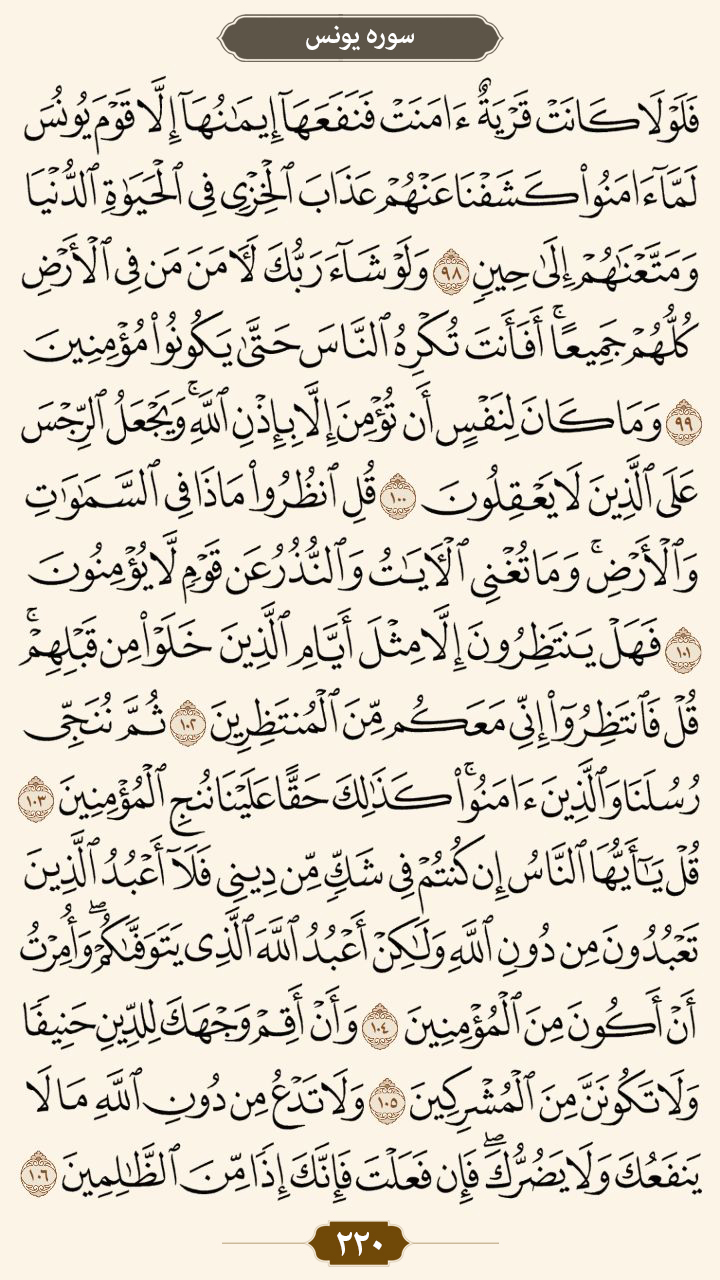 سوره یونس
فَلَوْلَا كَانَتْ قَرْيَةٌ ءَامَنَتْ فَنَفَعَهَآ إِيمَـٰنُهَآ إِلَّا قَوْمَ يُونُسَ
لَمَّآ ءَامَنُوا۟ كَشَفْنَا عَنْهُمْ عَذَابَ ٱلْخِزْىِ فِى ٱلْحَيَوٰةِ ٱلدُّنْيَا
وَمَتَّعْنَـٰهُمْ إِلَىٰ حِينٍ ٩٨ وَلَوْ شَآءَ رَبُّكَ لَـَٔامَنَ مَن فِى ٱلْأَرْضِ
كُلُّهُمْ جَمِيعًا ۚ أَفَأَنتَ تُكْرِهُ ٱلنَّاسَ حَتَّىٰ يَكُونُوا۟ مُؤْمِنِينَ
٩٩ وَمَا كَانَ لِنَفْسٍ أَن تُؤْمِنَ إِلَّا بِإِذْنِ ٱللَّهِ ۚ وَيَجْعَلُ ٱلرِّجْسَ
عَلَى ٱلَّذِينَ لَا يَعْقِلُونَ ١٠٠ قُلِ ٱنظُرُوا۟ مَاذَا فِى ٱلسَّمَـٰوَٰتِ
وَٱلْأَرْضِ ۚ وَمَا تُغْنِى ٱلْـَٔايَـٰتُ وَٱلنُّذُرُ عَن قَوْمٍ لَّا يُؤْمِنُونَ
١٠١ فَهَلْ يَنتَظِرُونَ إِلَّا مِثْلَ أَيَّامِ ٱلَّذِينَ خَلَوْا۟ مِن قَبْلِهِمْ ۚ
قُلْ فَٱنتَظِرُوٓا۟ إِنِّى مَعَكُم مِّنَ ٱلْمُنتَظِرِينَ ١٠٢ ثُمَّ نُنَجِّى
رُسُلَنَا وَٱلَّذِينَ ءَامَنُوا۟ ۚ كَذَٰلِكَ حَقًّا عَلَيْنَا نُنجِ ٱلْمُؤْمِنِينَ ١٠٣
قُلْ يَـٰٓأَيُّهَا ٱلنَّاسُ إِن كُنتُمْ فِى شَكٍّ مِّن دِينِى فَلَآ أَعْبُدُ ٱلَّذِينَ
تَعْبُدُونَ مِن دُونِ ٱللَّهِ وَلَـٰكِنْ أَعْبُدُ ٱللَّهَ ٱلَّذِى يَتَوَفَّىٰكُمْ ۖ وَأُمِرْتُ
أَنْ أَكُونَ مِنَ ٱلْمُؤْمِنِينَ ١٠٤ وَأَنْ أَقِمْ وَجْهَكَ لِلدِّينِ حَنِيفًا
وَلَا تَكُونَنَّ مِنَ ٱلْمُشْرِكِينَ ١٠٥ وَلَا تَدْعُ مِن دُونِ ٱللَّهِ مَا لَا
يَنفَعُكَ وَلَا يَضُرُّكَ ۖ فَإِن فَعَلْتَ فَإِنَّكَ إِذًا مِّنَ ٱلظَّـٰلِمِينَ ١٠٦
٢٢٠